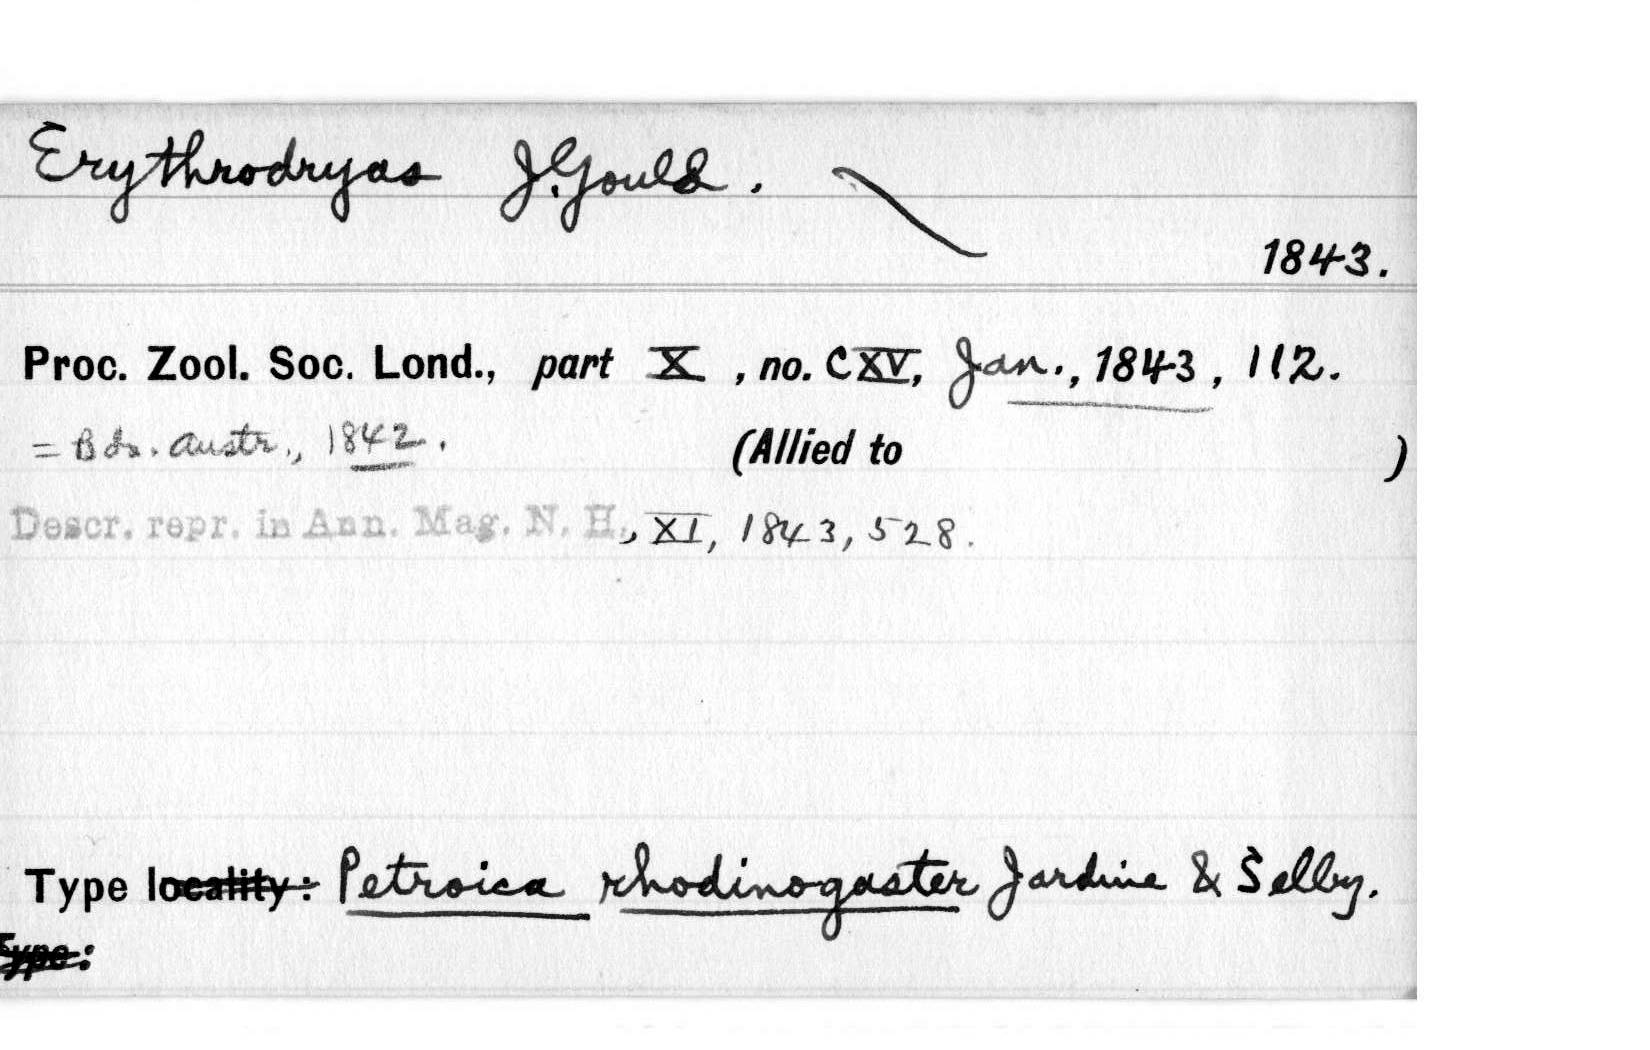 Erythrodryas J. Gould.
1843.
Proc. Zool. Soc. Lond., part X, no. CXV, Jan., 1843, 112.
= Bds. Austr., 1842. (Allied to )
Descr. repr. in Ann. Mag. N. H., XI, 1843, 528.
Type locality: Petroica rhodinogaster Jardine & Selby.
Type: